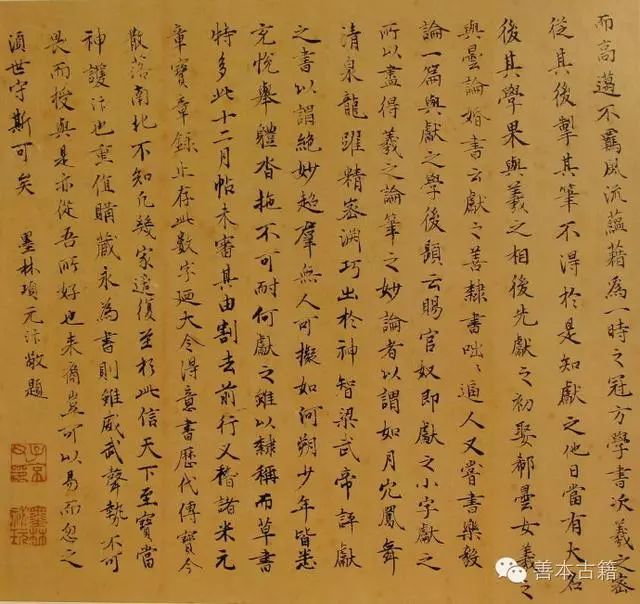 而高邁不羈風流蘊藉為一時之冠方學書次羲之密
從其後掣其筆不得於是知獻之他日當有大名
後其學果與羲之相後先獻之初娶郗曇女羲之
與曇論婚書云獻之善隸書咄咄逼人又嘗書樂毅
論一篇與獻之學後題云賜官奴即獻之小字獻之
所以盡得羲之論筆之妙論者以謂如丹穴鳳舞
清泉龍躍精密淵巧出於神智梁武帝評獻
之書以謂絕妙超群無人可擬如河朔少年皆悉
充悅舉體沓拖不可耐何獻之雖以隸稱而草書
特多此十二月帖未審其由割去前行又稽諸米元
章寶章錄止存此數字迺大令得意書歷代傳寶今
散落南北不知凡幾家這復至於此信天下至寶當
神護汴也重值購藏永為書則雖威武聲勢不可
畏而授與是亦從吾所好也来裔豈可以易而忽之
須世守斯可矣 墨林項元汴敬題
善本古籍